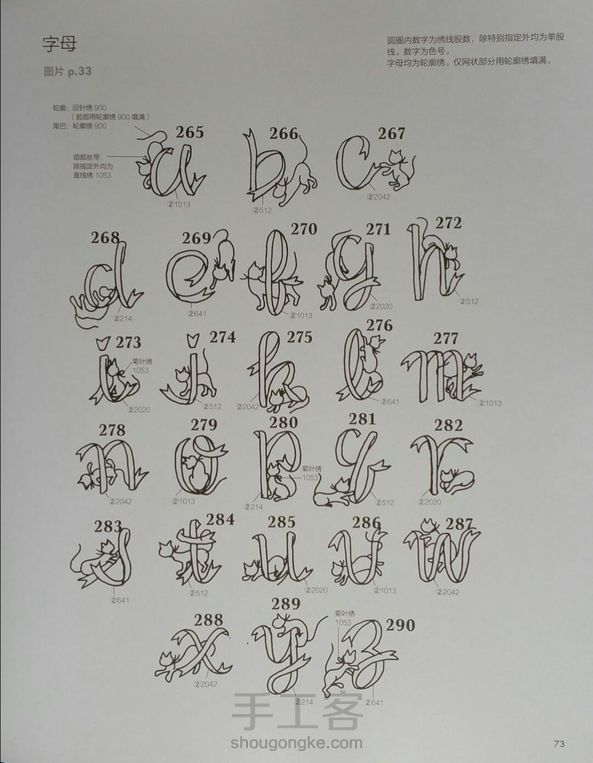 字母
图片 p.33
圆圈内数字为绣线股数，除特别指定外均为单股
线。数字为色号。
字母均为轮廓绣，仅网状部分用轮廓绣填满。
轮廓：回针绣 900
（脸部用轮廓绣 900 填满）
尾巴：轮廓绣 900
颈部丝带：
除指定外均为
直线绣 1053
265 266 267
a b c
②1013 ②512 ②2042
268 269 270 271 272
d e f g h
②214 ②641 ②1013 ②2020 ②512
273 274 275 276 277
菊叶绣
1053
i j k l m
②2020 ②512 ②2042 ②641 ②1013
278 279 280 281 282
n o p q r
菊叶绣
1053
②2042 ②1013 ②214 ②512 ②2020
283 284 285 286 287
s t u v w
②641 ②512 ②2020 ②1013 ②2042
288 289 290
菊叶绣
1053
x y z
②2042 ②214 ②641
手工客
shougongke.com
73